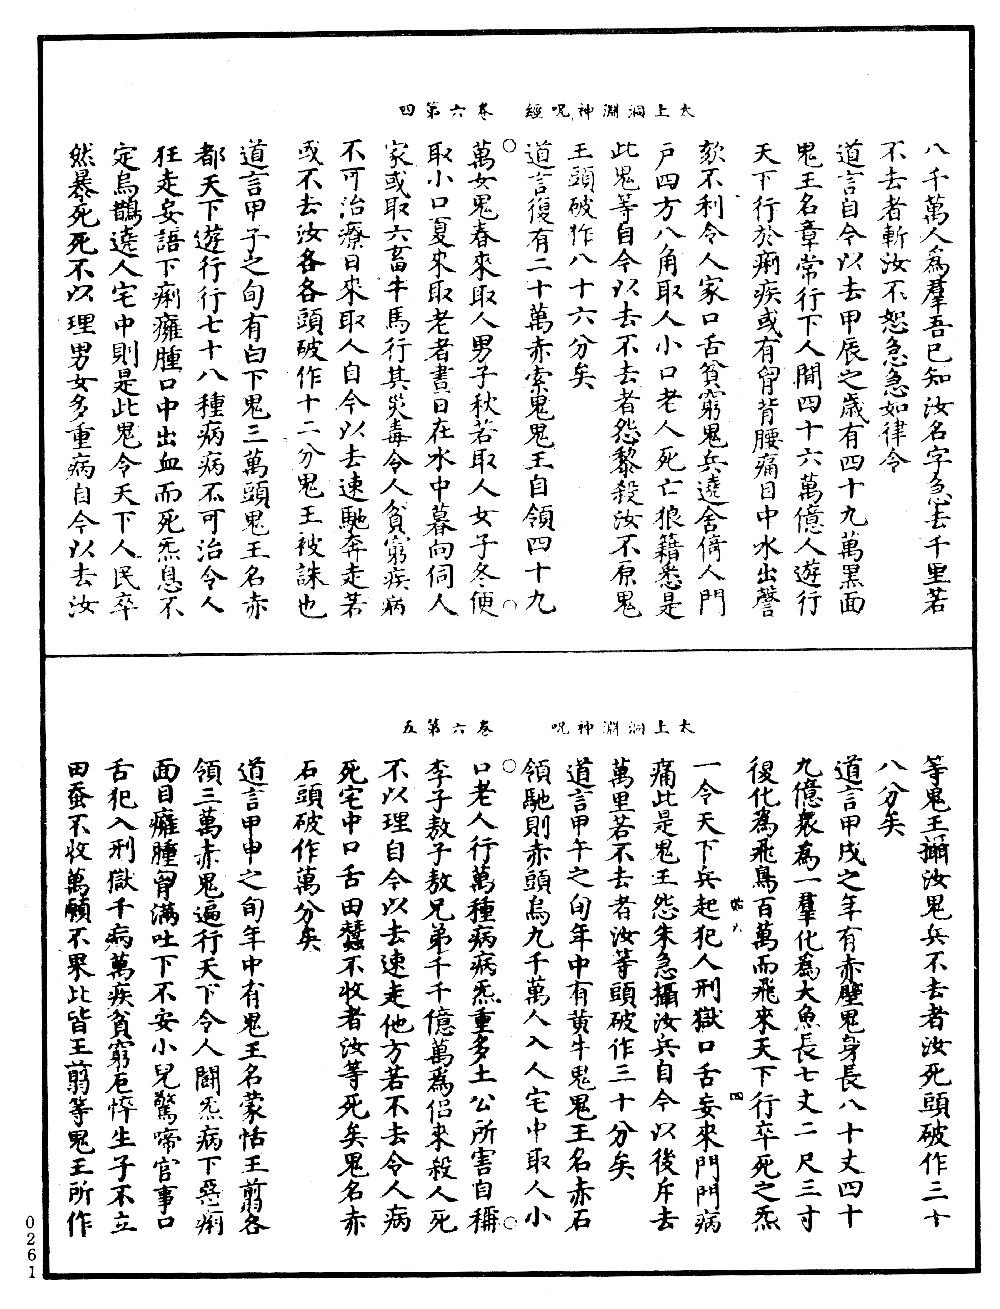 太上洞淵神呪經　卷六第四
八千萬人爲羣吾已知汝名字急去千里若
不去者斬汝不恕急急如律令
道言自今以去甲辰之歲有四十九萬黑面
鬼王名章常行下人間四十六萬億人遊行
天下行於痢疾或有胷背腰痛目中水出謦
欬不利令人家口舌貧窮鬼兵遶舍倚人門
戶四方八角取人小口老人死亡狼籍悉是
此鬼等自今以去不去者怨黎殺汝不原鬼
王頭破作八十六分矣
道言復有二十萬赤索鬼鬼王自領四十九
萬女鬼春來取人男子秋若取人女子冬便
取小口夏來取老者書日在水中暮向伺人
家或取六畜牛馬行其災毒令人貧窮疾病
不可治療日來取人自今以去速馳奔走若
或不去汝各各頭破作十二分鬼王被誅也
道言甲子之旬有白下鬼三萬頭鬼王名赤
都天下遊行行七十八種病病不可治令人
狂走妄語下痢癰腫口中出血而死炁息不
定烏鵲遶人宅中則是此鬼令天下人民卒
然暴死死不以理男女多重病自今以去汝
太上洞淵神呪　卷六第五
等鬼王攝汝鬼兵不去者汝死頭破作三十
八分矣
道言甲戌之年有赤壁鬼身長八十丈四十
九億衆爲一羣化爲大魚長七丈二尺三寸
復化爲飛鳥百萬而飛來天下行卒死之炁
一令天下兵起犯人刑獄口舌妄來門門病
痛此是鬼王怨朱急攝汝兵自今以後斥去
萬里若不去者汝等頭破作三十分矣
道言甲午之旬年中有黄牛鬼鬼王名赤石
領馳則赤頭烏九千萬人入人宅中取人小
口老人行萬種病病炁重多土公所害自稱
李子敖子敖兄弟千千億萬爲侣來殺人死
不以理自今以去速走他方若不去令人病
死宅中口舌田蠶不收者汝等死矣鬼名赤
石頭破作萬分矣
道言甲申之旬年中有鬼王名蒙恬王翦各
領三萬赤鬼遍行天下令人鬬炁病下惡痢
面目癰腫胷滿吐下不安小兒驚啼官事口
舌犯入刑獄千病萬疾貧窮卮悴生子不立
田蚕不收萬願不果此皆王翦等鬼王所作
四
0261